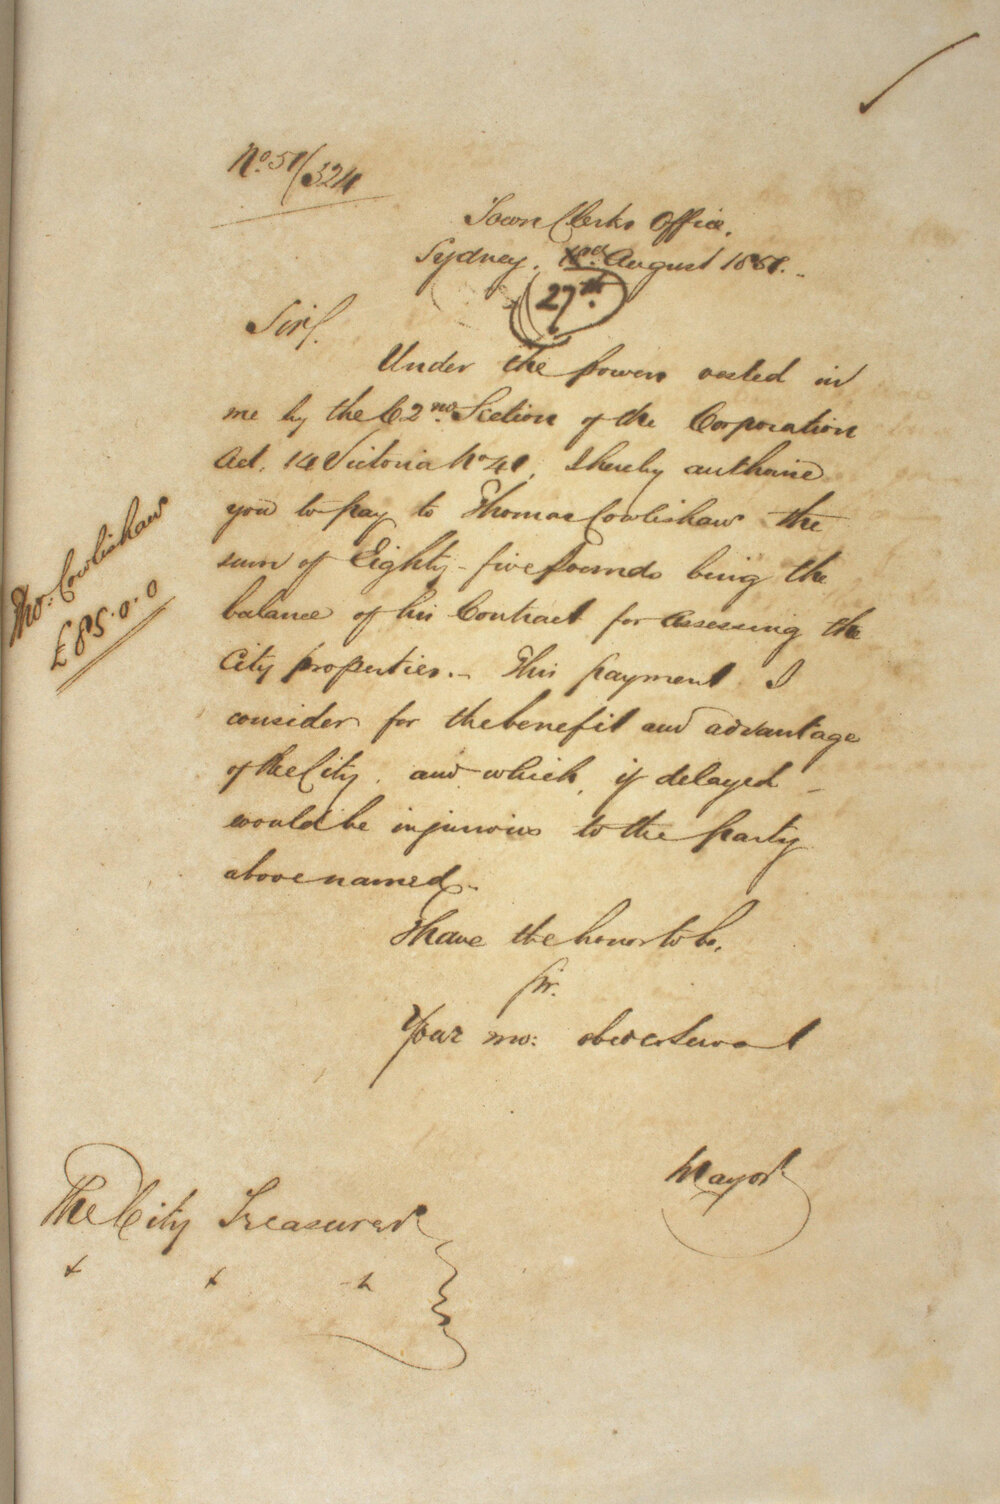 No. 51/324
Town Clerks Office.
Sydney. August 1851.
27th.
Sir/.
Under the powers vested in
me by the 62nd. Section of the Corporation
Act, 14 Victoria No 41, I hereby authorise
you to pay to Thomas Cowlishaw the
sum of Eighty-five pounds being the
balance of his Contract for assessing the
City properties. - This payment I
consider for the benefit and advantage
of the City, and which, if delayed -
would be injurious to the party
above named -
Tho: Cowlishaw
£85.0.0
I have the honor to be,
Sir.
Your mo: obed Servant
Mayor
The City Treasurer